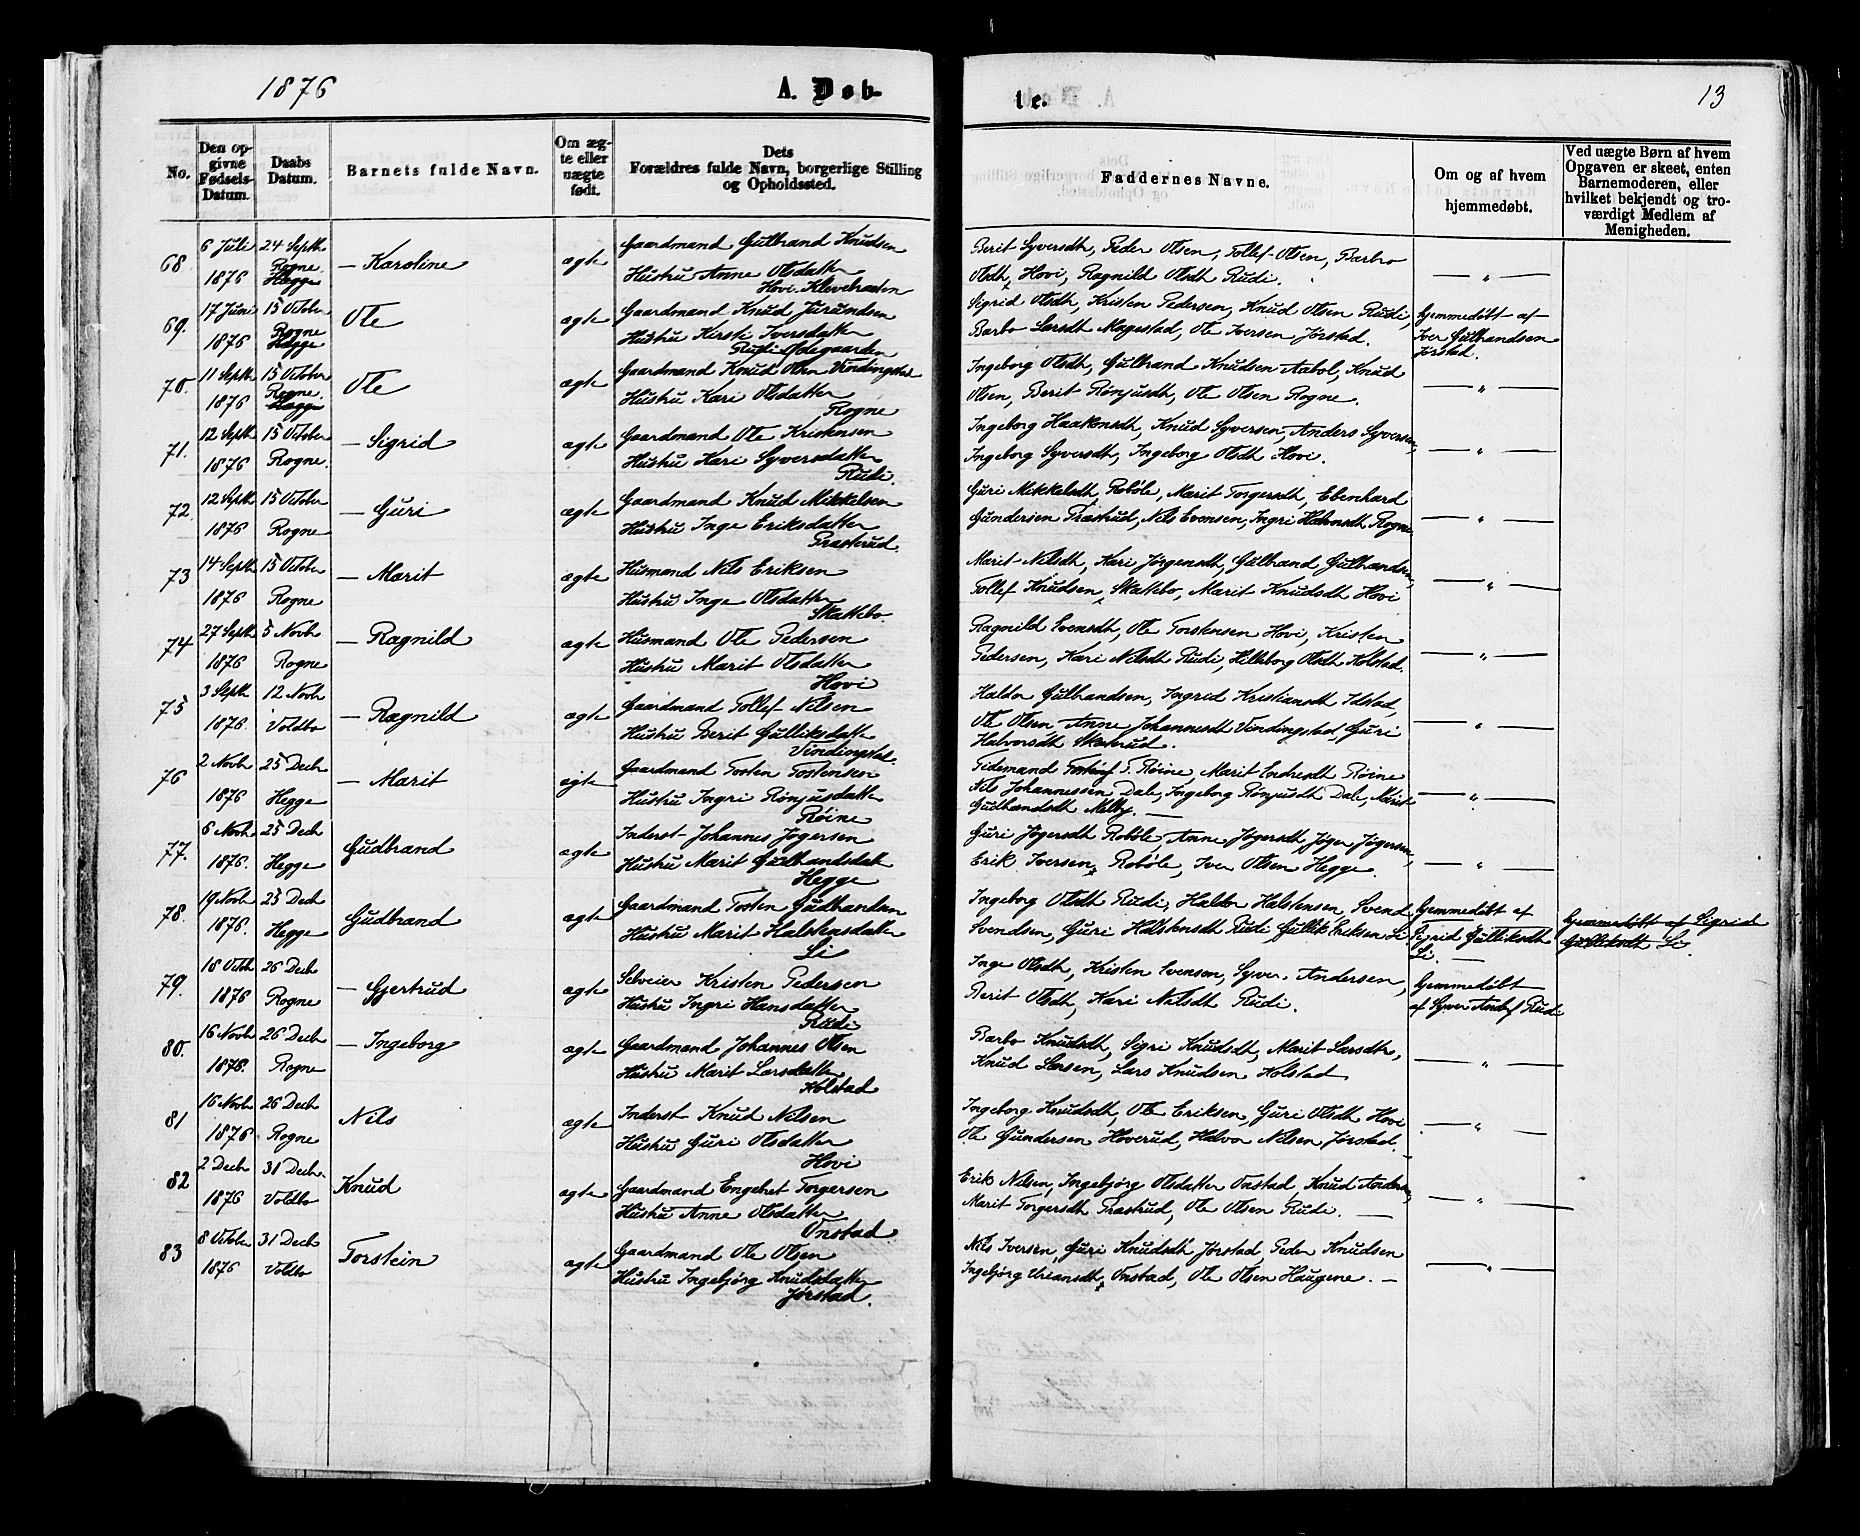 1876
A. Døb-
te.
13
No.
Den opgivne Fødsels-Datum.
Daabs Datum.
Barnets fulde Navn.
Om ægte eller uægte født.
Dets Forældres fulde Navn, borgerlige Stilling og Opholdssted.
Faddernes Navne.
Om og af hvem hjemmedøbt.
Ved uægte Børn af hvem Opgaven er skeet, enten Barnemoderen, eller hvilket bekjendt og troværdigt Medlem af Menigheden.
68 6 Juli 1876 24 Septb. Rogne Hegge — Karoline ægte Gaardmand Gulbrand Knudsen
Hustru Anne Olsdatter
Hovi
Berit Syversdt, Peder Olsen, Tollef Olsen, Barbro
Olsdt, Hovi, Ragnild Olsdt Rudi. — " —
69. 17 Juni 1876 15 October Rogne Hegge Ole ægte Gaardmand Knud Jurundsen
Hustru Kirsti Iversdatter
Rudi Ødegaarden
Sigrid Olsdt, Kristen Pedersen, Knud Olsen Rudi,
Barbo Larsdt Magestad, Ole Iversen Jørstad.
Hjemmedøbt af
Iver Gulbrandsen
Jørstad.
70. 11 Septb 1876 15 October Rogne Hegge Ole ægte Gaardmand Knud Olsen Vindingstad
Hustru Kari Olsdatter
Rogne
Ingeborg Olsdt, Gulbrand Knudsen Aabol, Knud
Olsen, Berit Rønjusdt, Ole Olsen Rogne. — " —
71. 12 Septb 1876 15 October Rogne. — Sigrid ægte Gaardmand Ole Kristensen
Hustru Kari Syversdatter
Rudi.
Ingeborg Haakonsdt, Knud Syversen, Anders Syversen,
Ingeborg Syversdt, Ingeborg Olsdt Hovi. — " —
72. 12 Septb 1876 15 October Rogne — Guri ægte Gaardmand Knud Mikkelsen
Hustru Inge Eriksdatter
Præstrud.
Guri Mikkelsdt, Robøle, Marit Torgersdt, Ebenhard
Gundersen Præstrud, Nils Evensen, Ingri Rogne — " —
73. 14 Septb 1876 15 October Rogne — Marit ægte Husmand Nils Eriksen
Hustru Inge Olsdatter
Skattebo.
Marit Nilsdt, Kari Jørgensdt, Gulbrand Gulbrandsen,
Tollef Knudsen, Skattebo, Marit Knudsdt Hovi — " —
74 27 Septb 1876 5 Novb Rogne — Ragnild ægte Husmand Ole Pedersen
Hustru Marit Olsdatter
Hovi
Ragnild Evensdt, Ole Torstensen Hovi, Kristen
Pedersen, Kari Nilsdt Rudi, Hilleborg Olsdt Kolstad. — " —
75 3 Septb 1876 12 Novb Voldbo — Ragnild ægte Gaardmand Tollef Nilsen
Hustru Berit Gulliksdatter
Vindingstad.
Haldor Gulbrandsen, Ingrid Kristiansdt Idstad,
Ole Olsen, Anne Johannesdt Vindingstad, Guri
Halvorsdt Skaterud. — " —
76 2 Novb 1876 25 Decb Hegge — Marit ægte Gaardmand Tosten Tostensen
Hustru Ingri Rønjusdatter
Røine
Tidemand T. Røine, Marit Endresdt Røine
Nils Johannessen Dale, Ingeborg Rønjusdt Dale, Marit
Gulbrandsdt Melby. — — " —
77. 6 Novb. 1876 25 Decb Hegge Gudbrand ægte Inderst Johannes Jøgersen
Hustru Marit Gulbrandsdatter
Hegge
Guri Jøgersdt Robøle, Anne Jøgersdt, Jøger Jøgersen,
Erik Iversen, Robøle, Iver Olsen Hegge. — " —
78. 19 Novb 1876. 25 Decb Hegge Gudbrand ægte Gaardmand Tosten Gudbrandsen
Hustru Marit Halstensdatter
Li
Ingeborg Olsdt Rudi, Haldor Halstensen, Svend
Svendsen, Guri Halstensdt Rudi, Gullik Eriksen Li
Hjemmedøbt af
Sigrid Gulliksdt
Li. —
Hjemmedøbt af Sigrid
Gulliksdt Li.
79. 18 Octob 1876 26 Decb Rogne — Gjertrud ægte Selveier Kristen Pedersen
Hustru Ingri Hansdatter
Rudi
Inge Olsdt, Kristen Evensen, Syver Andersen,
Berit Olsdt, Kari Nilsdt Rudi.
Hjemmedøbt
af Syver Anders. Rudi
80. 16 Novb 1876. 26 Decb Rogne — Ingeborg ægte Gaardmand Johannes Olsen
Hustru Marit Larsdatter
Kolstad
Barbo Knudsdt, Sigri Knudsdt, Marit Larsdtr,
Knud Larsen, Lars Knudsen Kolstad — " —
81 16 Novb 1876 26 Decb Rogne Nils ægte Inderst Knud Nilsen
Hustru Guri Olsdatter
Hovi
Ingeborg Knudsdt, Ole Eriksen, Guri Olsdt Hovi
Ole Gundersen Hoverud, Halvor Nilsen Jørstad. — " —
82 2 Decb 1876 31 Decb. Voldbo Knud ægte Gaardmand Engebret Torgersen
Hustru Anne Olsdatter
Onstad
Erik Nilsen, Ingebjørg Olsdatter Onstad, Knud Andersen,
Marit Torgersdt Præstrud, Ole Olsen Rudi. — — " —
83 8 October 1876 31 Decb Voldbo Torstein ægte Gaardmand Ole Olsen
Hustru Ingebjørg Knudsdatter
Jørstad.
Nils Iversen, Guri Knudsdt, Jørstad, Peder Knudsen
Ingebjørg Onstad, Ole Olsen Haugene. — — " —